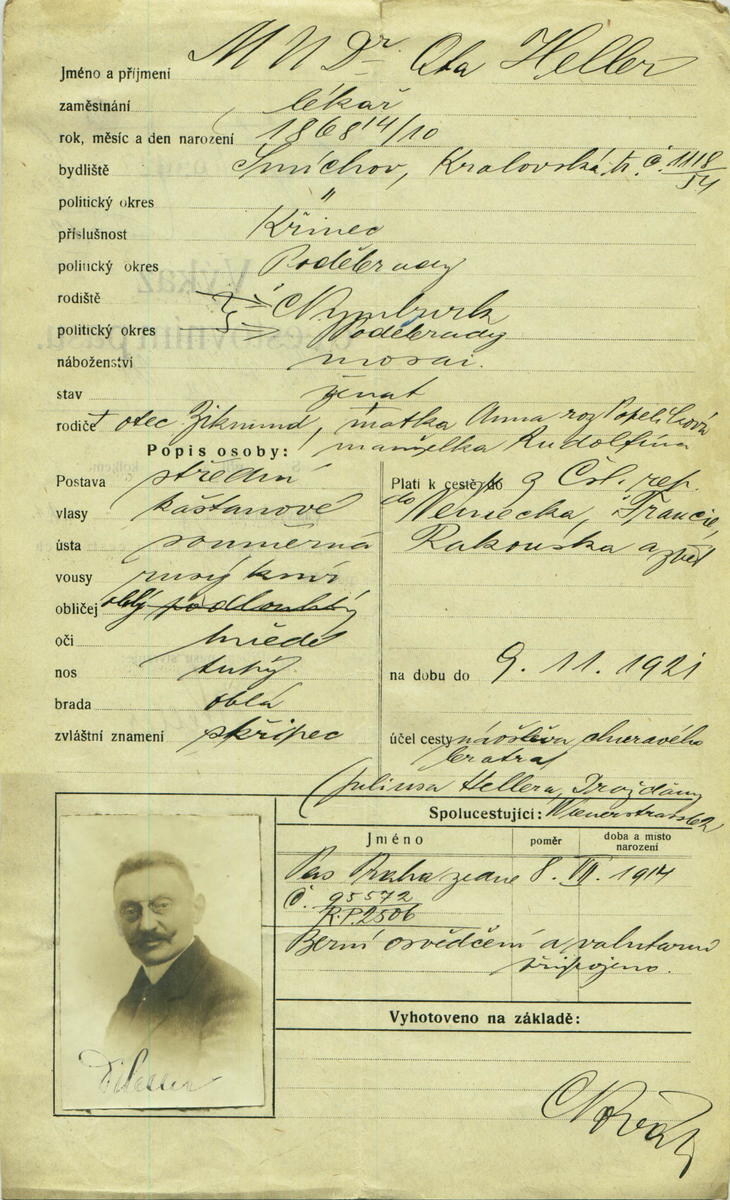 Jméno a příjmení MUDr Ota Heller
zaměstnání lékař
rok, měsíc a den narození 1868 14/10
bydliště Smíchov, Kralovská tr. č. 1118/54
politický okres "
příslušnost Křinec
politický okres Poděbrady
rodiště Nymburk
politický okres Poděbrady
náboženství mosai.
stav ženat
rodiče otec Zikmund, matka Anna roz
manželka Rudolfína
Popis osoby:
Postava střední
vlasy kaštanové
ústa souměrná
vousy rusý knír
obličej oblý podlouhlý
oči hnědé
nos tuhý
brada oblá
zvláštní znamení skřipec
Platí k cestě do z Čsl. rep.
do Německa, Francie,
Rakouska a zpět
na dobu do 9. 11. 1921
účel cesty návštěva churavého
bratra
Juliusa Hellera, Drážďany
Wienerstrasse 62
Spolucestující:
Jméno poměr doba a místo narození
Pas Praha ze dne 8. VII. 1914
Č. 95572
R.P. 2506
Berní osvědčení a valutární
připojeno.
Vyhotoveno na základě:
Novák
DrHeller